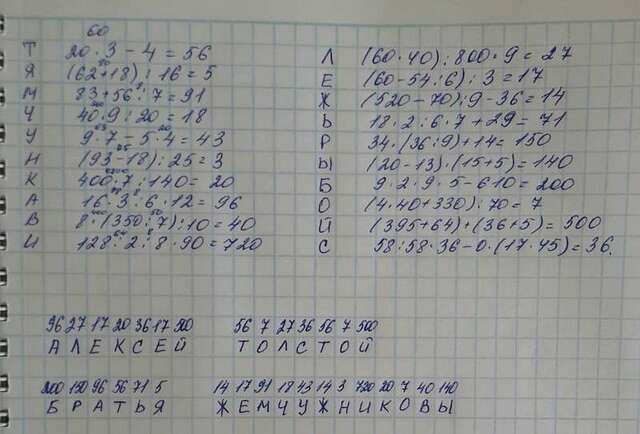 60
Т 20 · 3 - 4 = 56
Я (62+18) : 16 = 5
М 83+56 : 7 = 91
Ч 40 · 9 : 20 = 18
У 9 · 7 - 5 · 4 = 43
Н (93-18) : 25 = 3
К 400 · 7 : 140 = 20
А 16 · 3 : 6 · 12 = 96
В 8 · (350 : 7) : 10 = 40
И 128 : 2 : 8 · 90 = 720
Л (60 · 40) : 800 · 9 = 27
Е (60-54 : 6) : 3 = 17
Ж (520-70) : 9 - 36 = 14
Ь 18 · 2 : 6 · 7 + 29 = 71
Р 34 · (36 : 9) + 14 = 150
Ы (20-13) · (15+5) = 140
Б 9 · 2 · 9 · 5 - 610 = 200
О (4 · 40 + 330) : 70 = 7
Й (395+64) + (36+5) = 500
С 58 : 58 · 36 - 0 · (17 · 45) = 36.
96 27 17 20 36 17 500
А Л Е К С Е Й
56 7 27 36 56 7 500
Т О Л С Т О Й
200 150 96 56 71 5
Б Р А Т Ь Я
14 17 91 18 43 14 3 720 20 7 40 140
Ж Е М Ч У Ж Н И К О В Ы